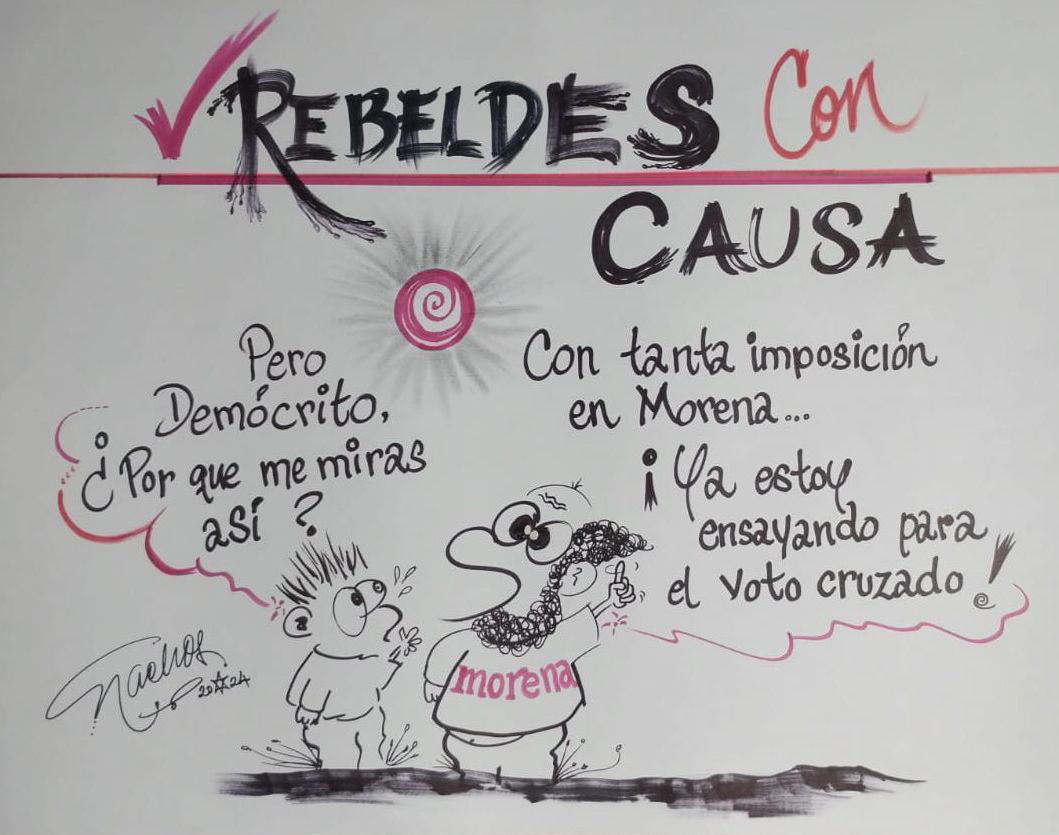 REBELDES Con
CAUSA
Pero
Demócrito,
¿Por que me miras
así?
Con tanta imposición
en Morena...
¡Ya estoy
ensayando para
el voto cruzado!
morena
Nachos
2024